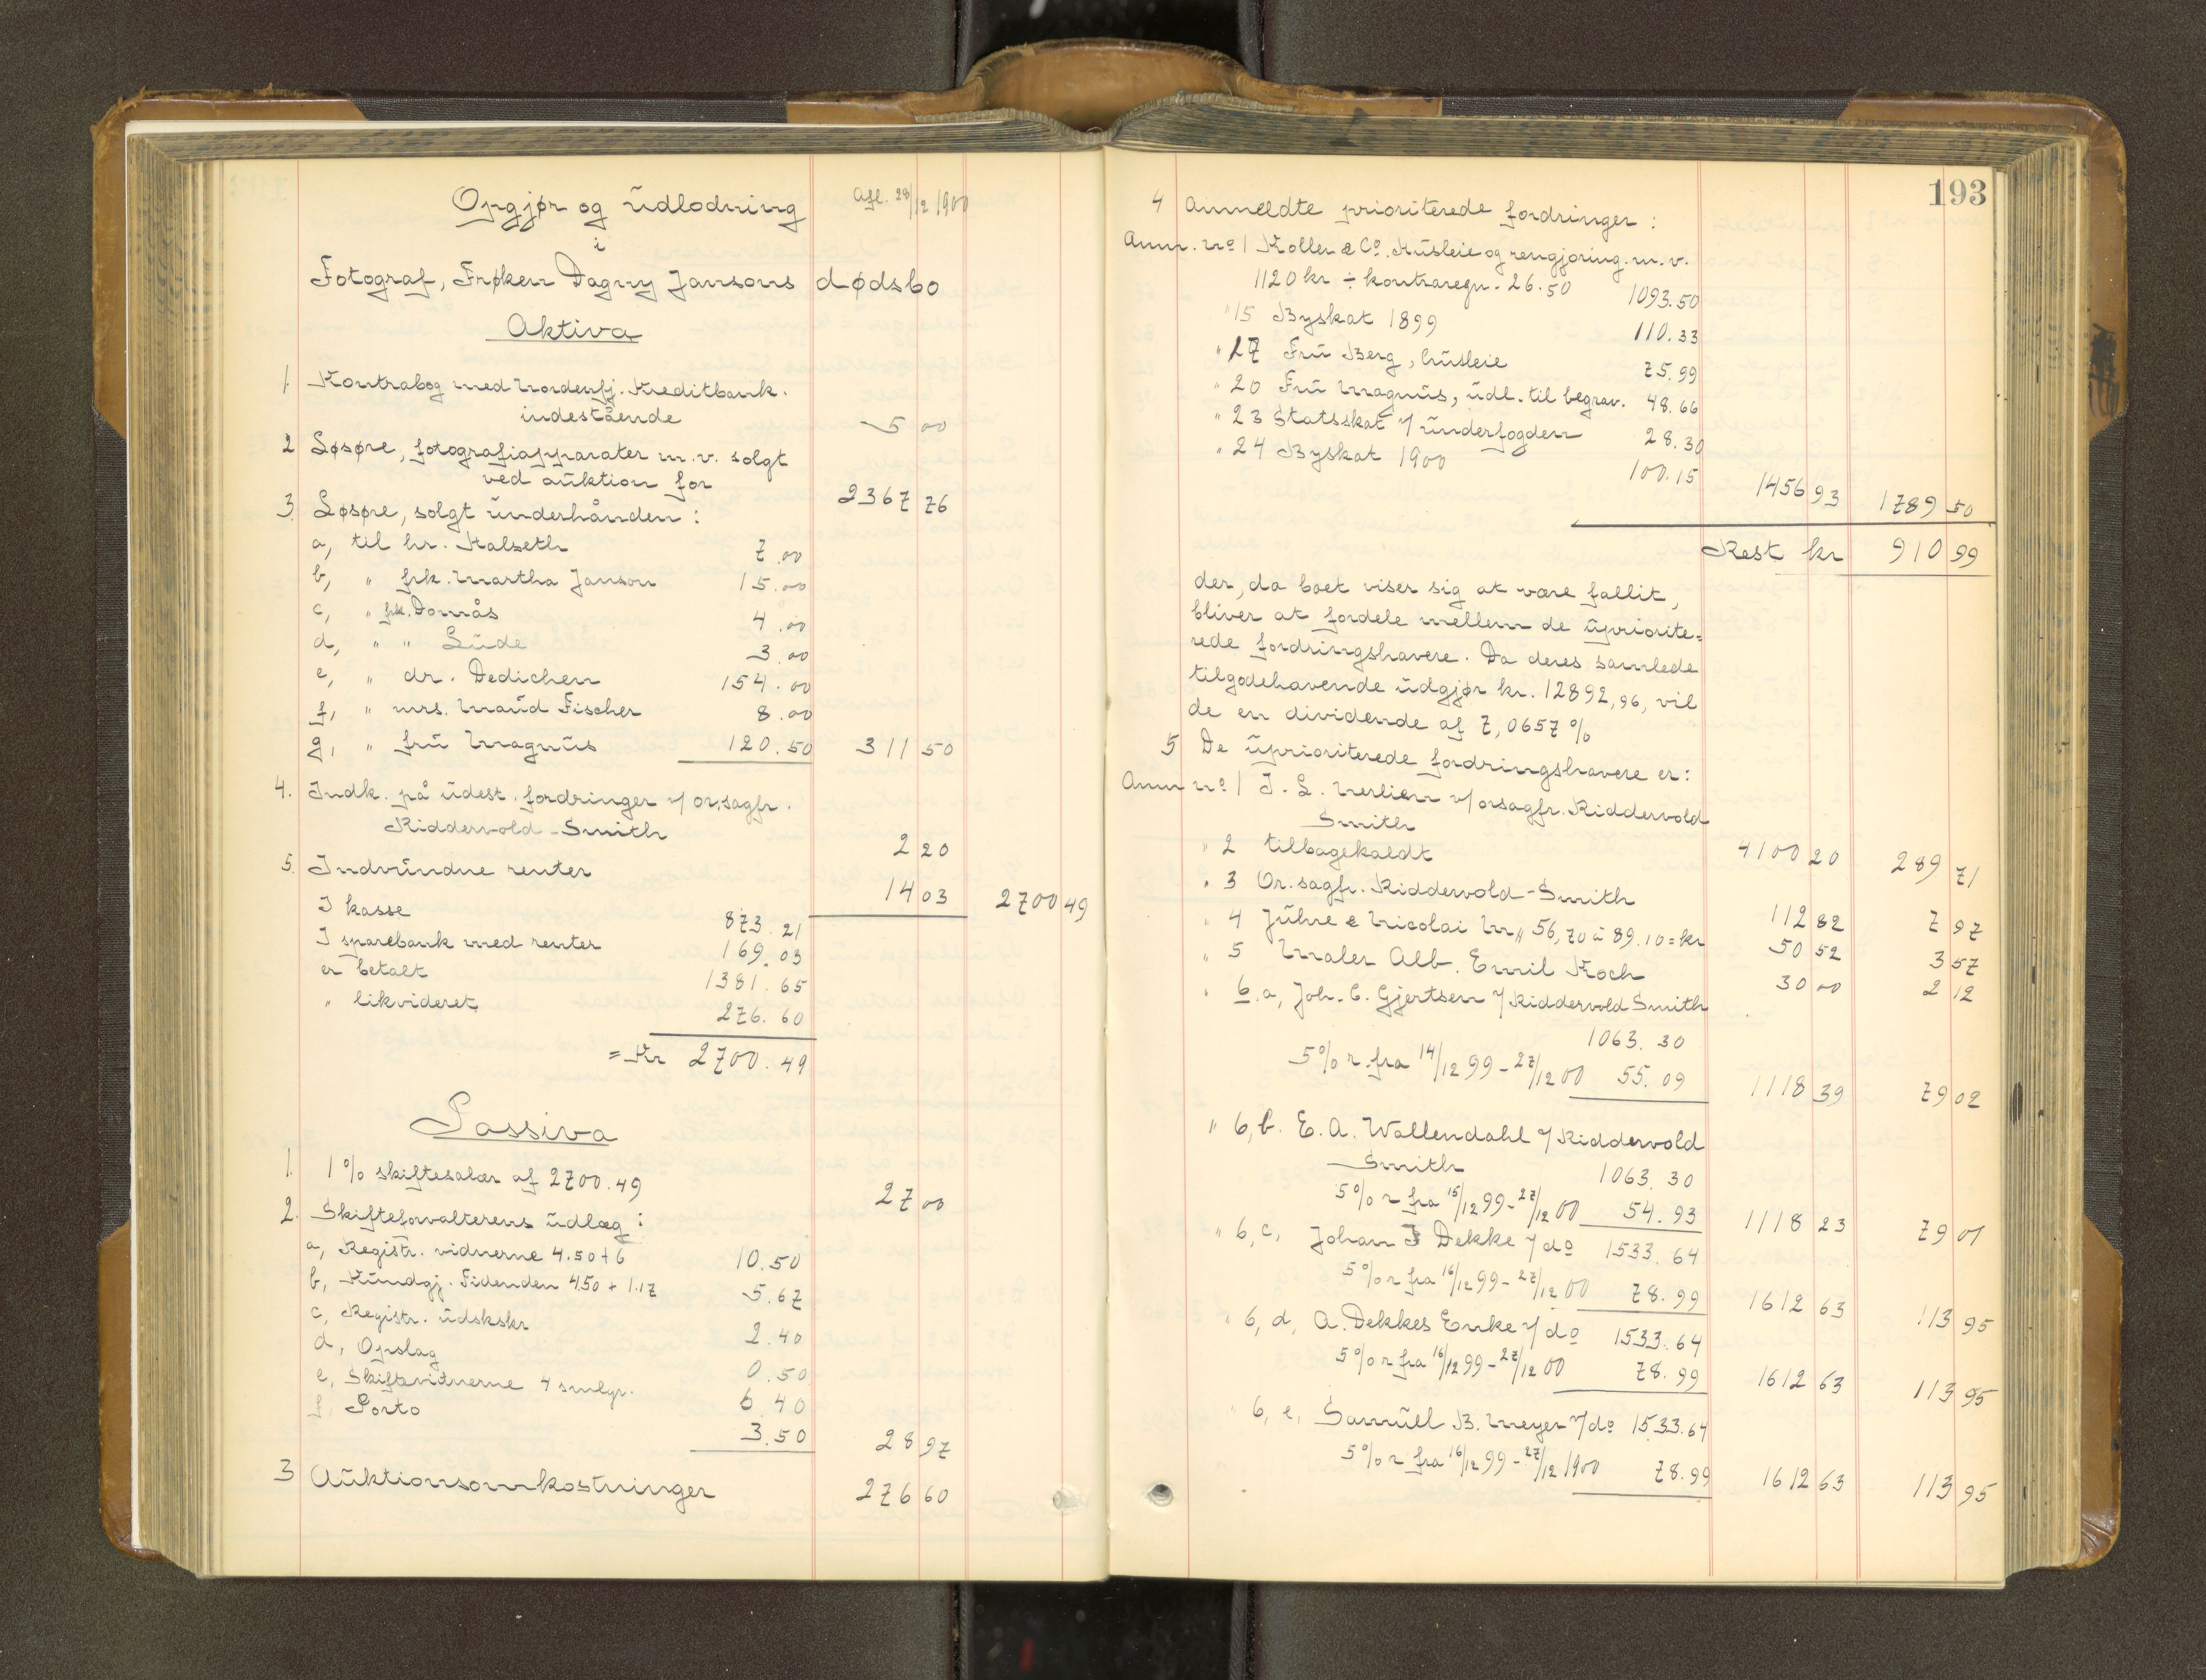 Opgjør og udlodning Afl. 28/12 1900
i
Fotograf, Frøken Dagny Jansons dødsbo
Aktiva
1. Kontrabog med Nordenfj. Kreditbank.
indestående 5 00
2 Løsøre, fotografiapparater m.v. solgt
ved auktion for 2367 76
3. Løsøre, solgt underhånden:
a, til hr. Halseth 7.00
b, " frk. Martha Janson 15.00
c, " frk. Domås 4.00
d, " " Lude 3.00
e, " dr. Dedichen 154.00
f, " mrs. Maud Fischer 8.00
g, " fru Magnus 120.50 311 50
4. Indk. på udest. fordringer v/ or.sagfr.
Riddervold-Smith 2 20
5. Indvundne renter 14 03 2700 49
I kasse 873.21
I sparebank med renter 169.03
er betalt 1381.65
" likvideret 276.60
= Kr 2700.49
Passiva
1. 1% skiftesalær af 2700.49 27 00
2. Skifteforvalterens udlæg:
a, Registr. vidnerne 4.50+6 10.50
b, Kundgj. Tidenden 4.50 + 1.17 5.67
c, Registr. udskskr 2.40
d, Opslag 0.50
e, Skiftevidnerne 4 smlgr. 6.40
f, Porto 3.50 28 97
3 Auktionsomkostninger 276 60
193
4 Anmeldte prioriterede fordringer:
Anm. no 1 Koller & Co. Husleie og rengjøring. m.v.
1120 kr ÷ kontraregn. 26.50 1093.50
" 15 Byskat 1899 110.33
" 17 Fru Berg, husleie 75.99
" 20 Fru Magnus, udl. til begrav. 48.66
" 23 Statsskat v/ underfogden 28.30
" 24 Byskat 1900 100.15 1456 93 1789 50
Rest kr 910 99
der, da boet viser sig at være fallit,
bliver at fordele mellem de upriorite=
rede fordringshavere. Da deres samlede
tilgodehavende udgjør kr. 12892,96, vil
de en dividende af 7,0657 %
5 De uprioriterede fordringshavere er:
Anm no 1 J. L. Nerlien v/ orsagfr. Riddervold
Smith 4100 20 289 71
" 2 tilbagekaldt
" 3 Or. sagfr. Riddervold-Smith 112 82 7 97
" 4 Juhre & Nicolai M" 56,70 à 89.10 = kr 50 52 3 57
" 5 Maler Alb. Emil Koch 30 00 2 12
" 6.a, Joh. C. Gjertsen v/ Riddervold Smith
1063.30
5% r. fra 14/12 99 - 27/12 00 55.09 1118 39 79 02
" 6,b. E. A. Wallendahl v/ Riddervold
Smith 1063.30
5% r fra 15/12 99 - 27/12 00 54.93 1118 23 79 01
" 6,c, Johan J Dekke v/ do 1533.64
5% r fra 16/12 99 - 27/12 00 78.99 1612 63 113 95
" 6,d, A. Dekkes Enke v/ do 1533.64
5% r fra 16/12 99 - 27/12 00 78.99 1612 63 113 95
" 6,e, Samuell B. Meyer v/ do 1533.64
5% r fra 16/12 99 - 27/12 1900 78.99 1612 63 113 95